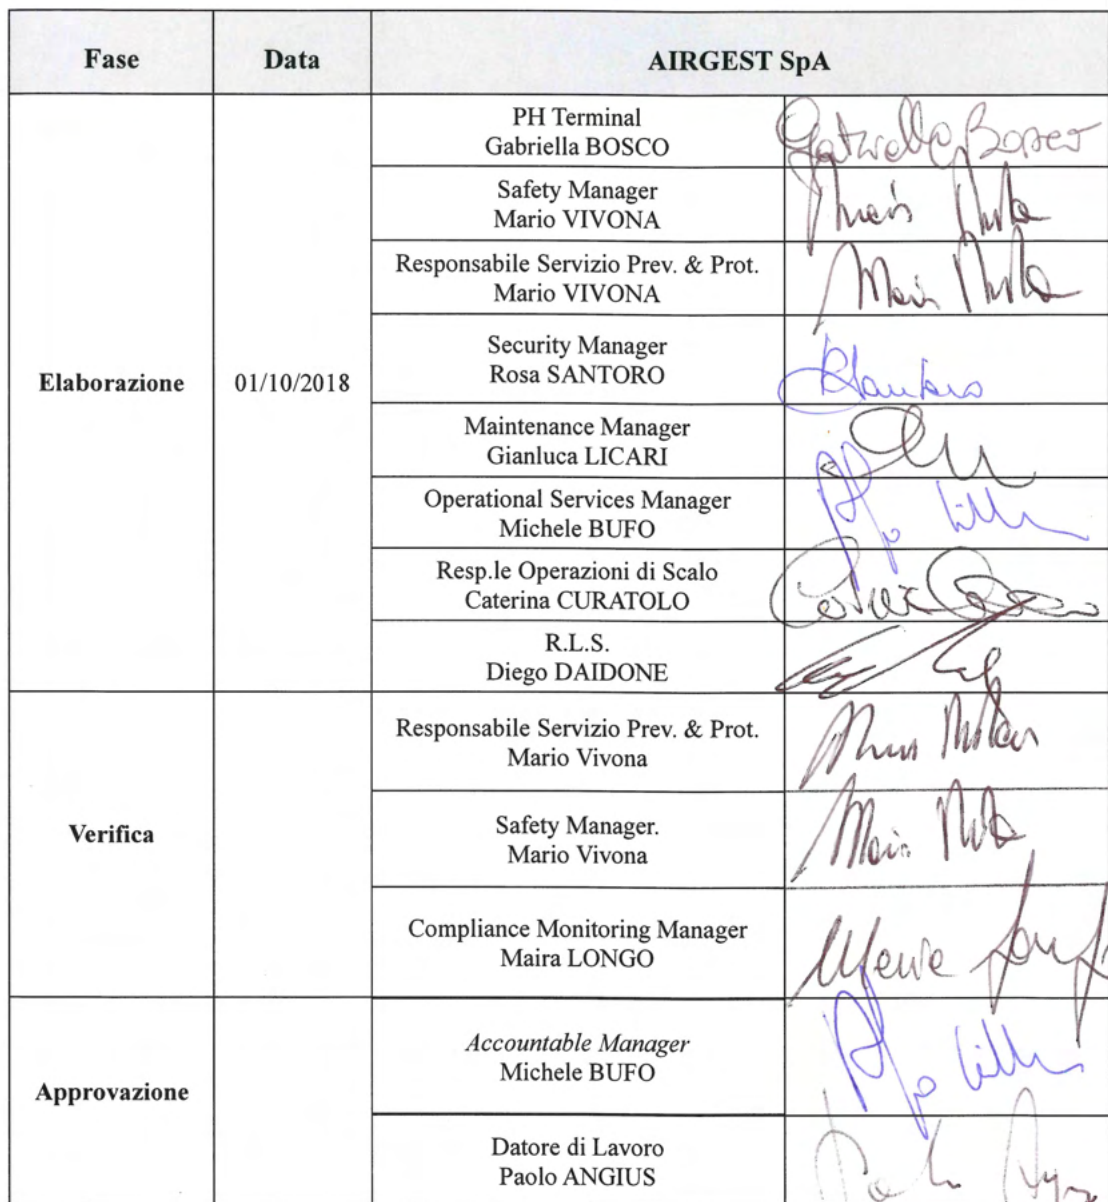 Fase Data AIRGEST SpA
PH Terminal
Gabriella BOSCO
Gabriella Bosco
Safety Manager
Mario VIVONA
Responsabile Servizio Prev. & Prot.
Mario VIVONA
Security Manager
Rosa SANTORO
Elaborazione 01/10/2018
Maintenance Manager
Gianluca LICARI
Operational Services Manager
Michele BUFO
Resp.le Operazioni di Scalo
Caterina CURATOLO
R.L.S.
Diego DAIDONE
Responsabile Servizio Prev. & Prot.
Mario Vivona
Verifica
Safety Manager.
Mario Vivona
Compliance Monitoring Manager
Maira LONGO
Approvazione
Accountable Manager
Michele BUFO
Datore di Lavoro
Paolo ANGIUS